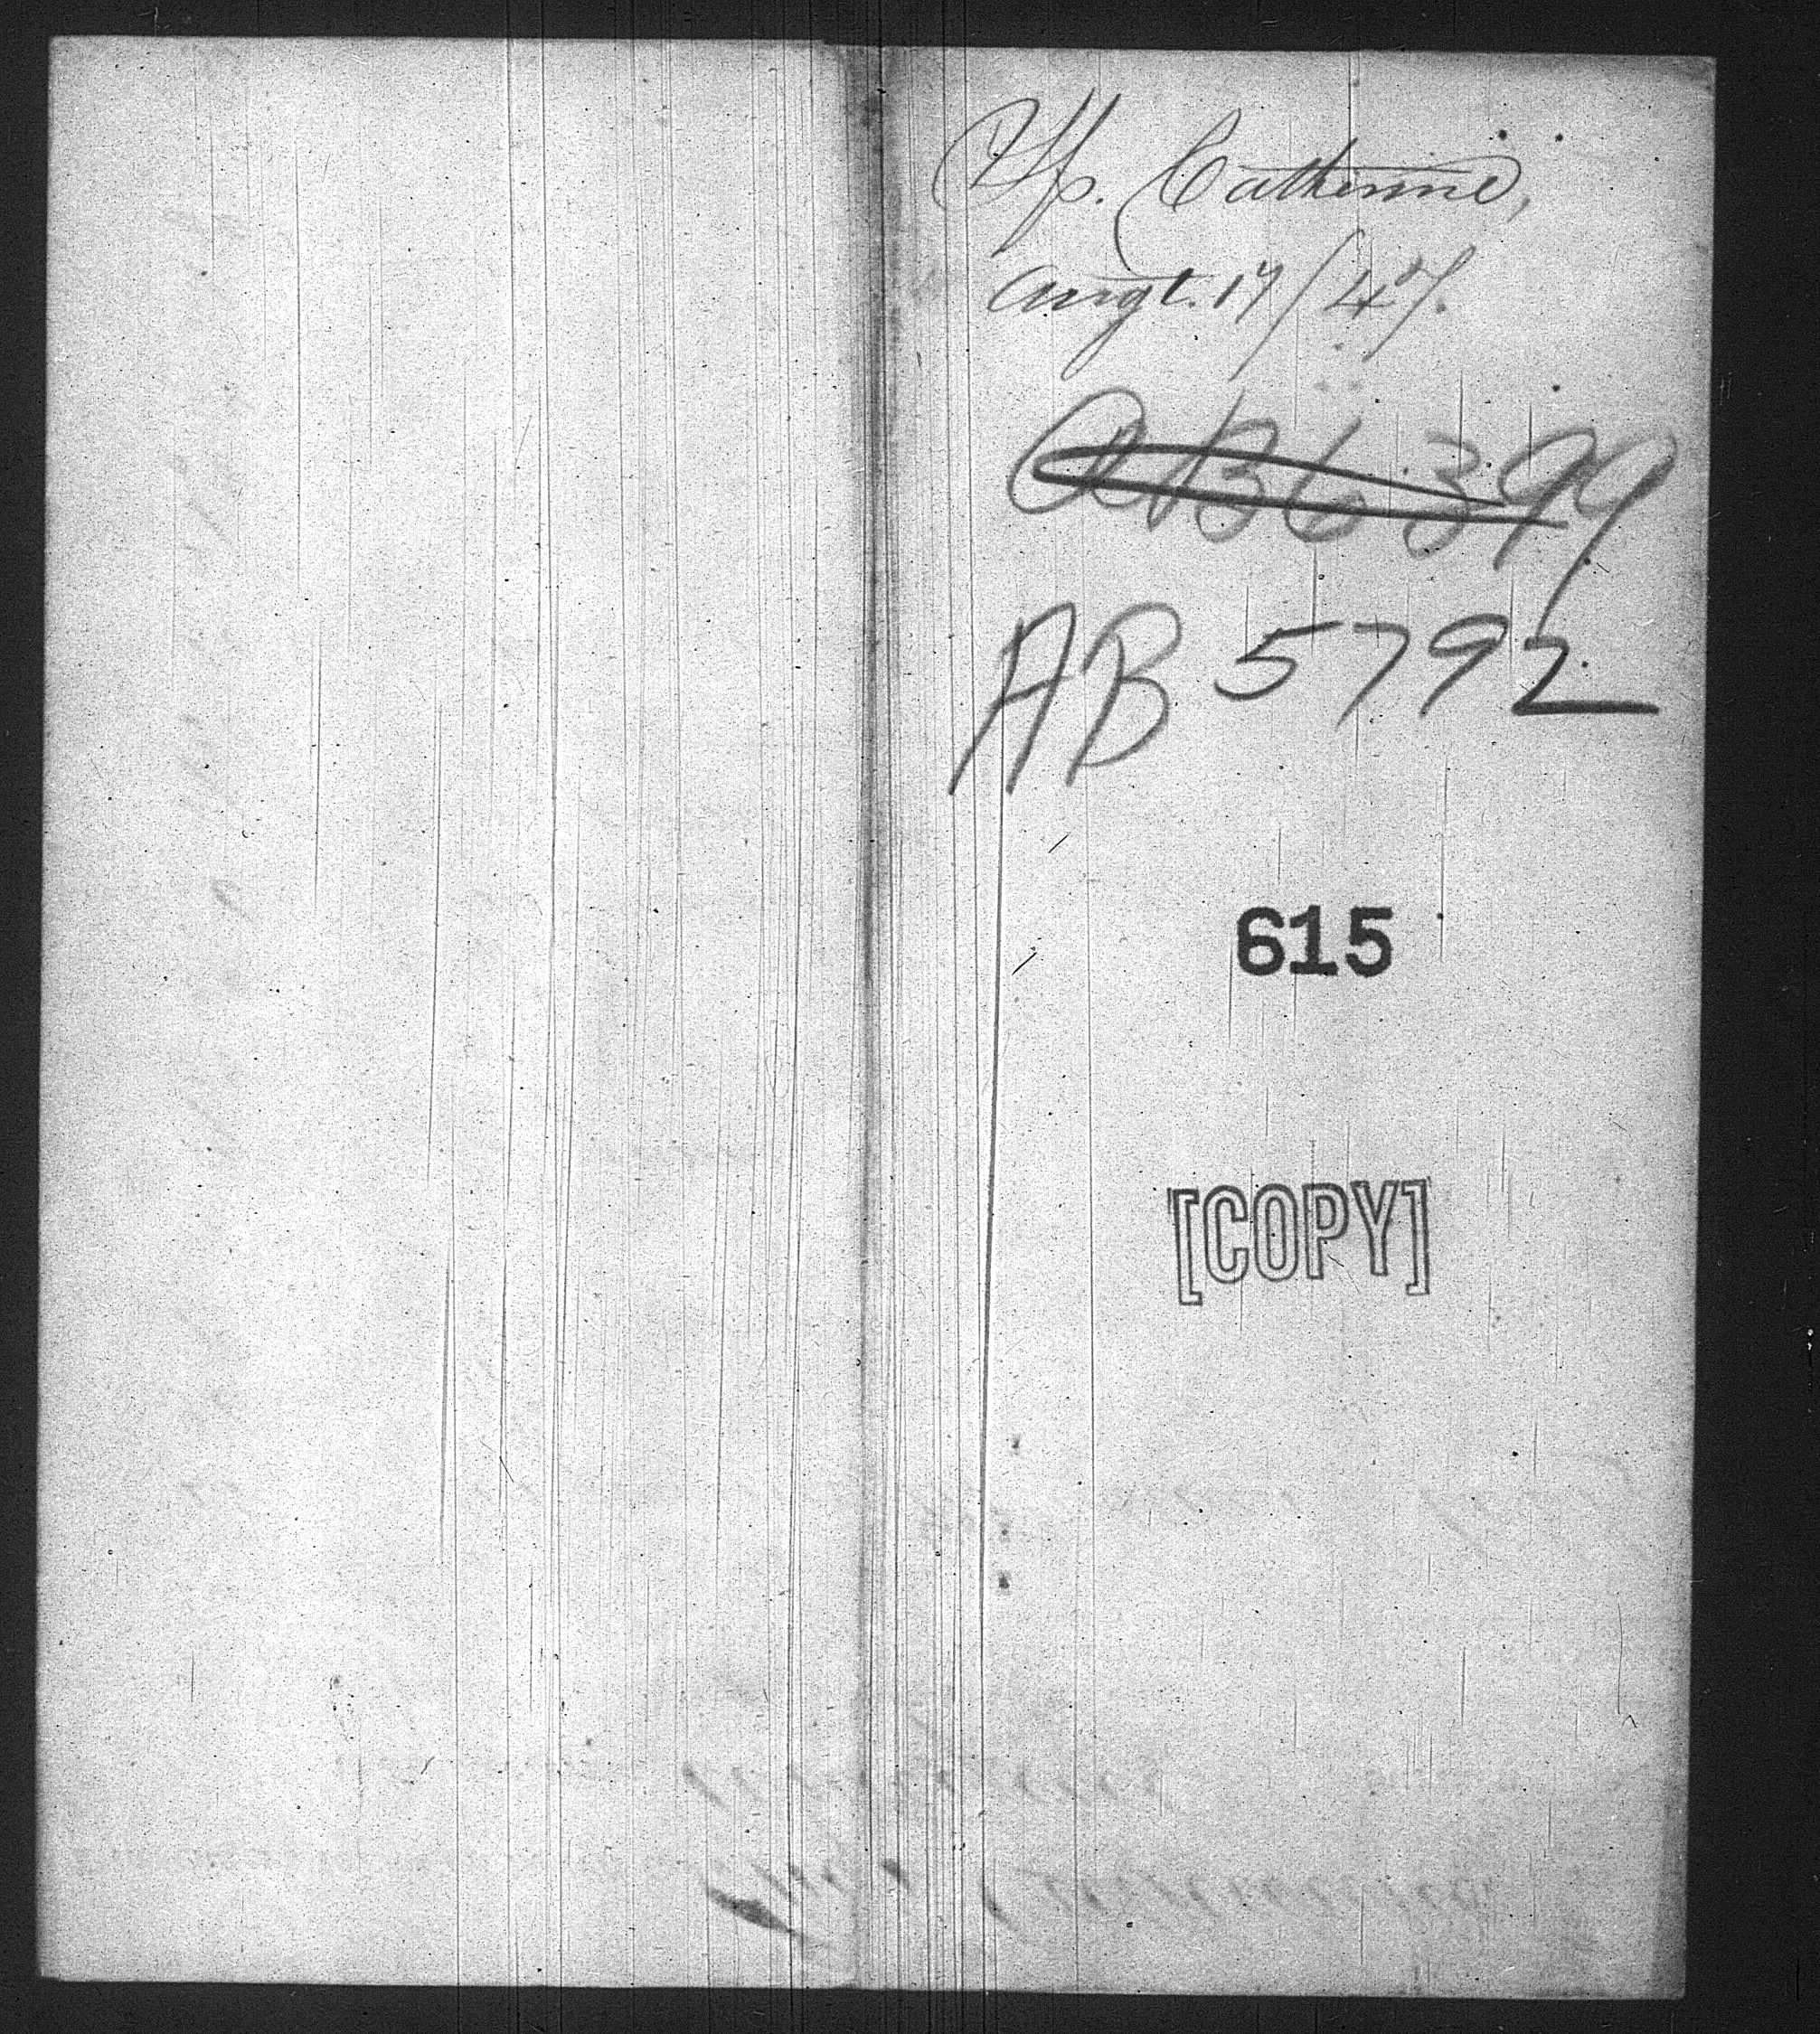 Catherine,
Augt. 17/47.
AB 6399
AB 5792
615
[COPY]